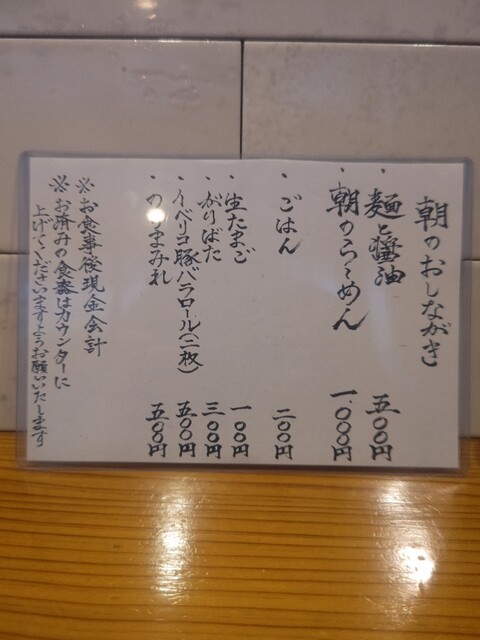 朝のおしながき
・麺と醤油 五〇〇円
・朝のらーめん 一.〇〇〇円
・ごはん 二〇〇円
・生たまご 一〇〇円
・がりばた 三〇〇円
・イベリコ豚バラロール(二枚) 五〇〇円
・のりまみれ 五〇〇円
※お食事後現金会計
※お済みの食器はカウンターに
上げてくださいますようお願いいたします